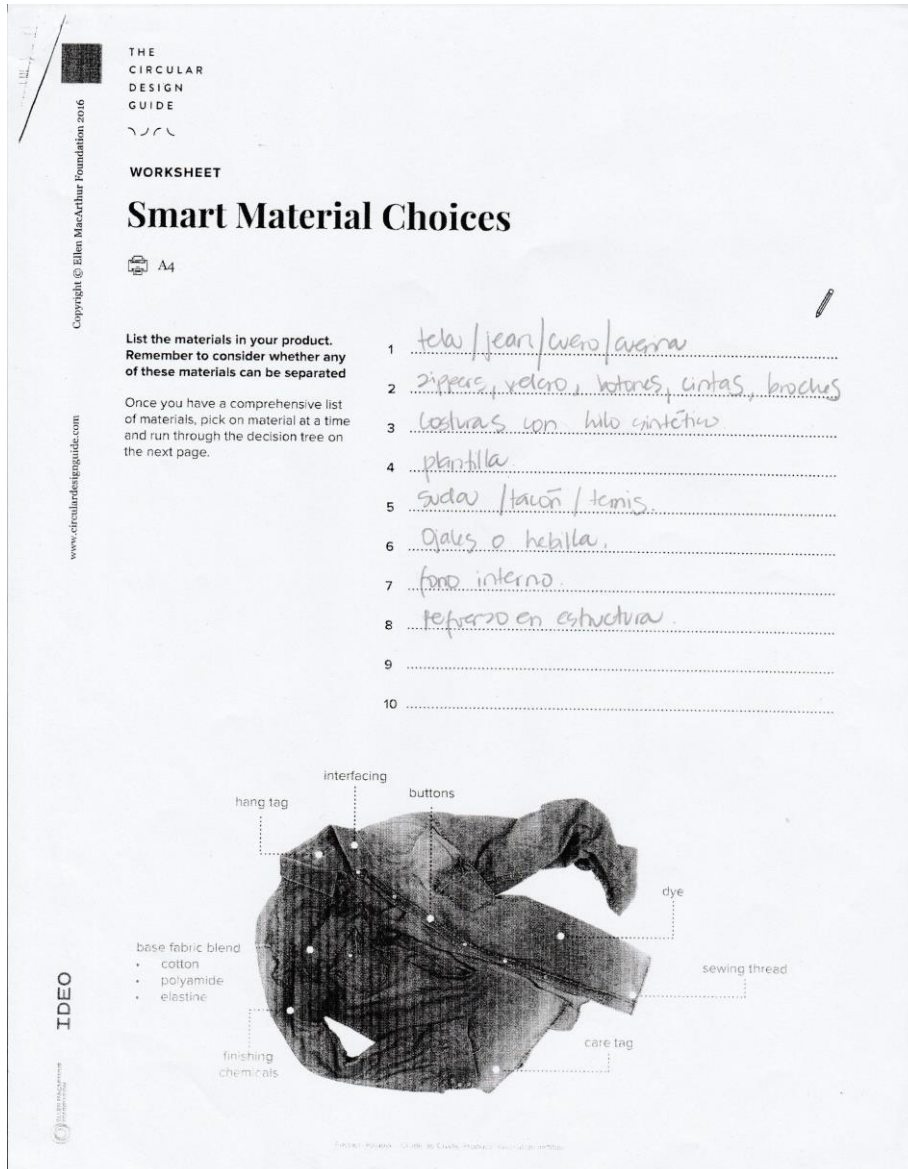 THE
CIRCULAR
DESIGN
GUIDE
Copyright © Ellen MacArthur Foundation 2016
WORKSHEET
Smart Material Choices
A4
www.circulardesignguide.com
List the materials in your product.
Remember to consider whether any
of these materials can be separated
Once you have a comprehensive list
of materials, pick on material at a time
and run through the decision tree on
the next page.
1 tela / jean / cuero / cuerina
2 zippers, velcro, botones, cintas, broches
3 costuras con hilo sintético
4 plantilla
5 suela / tacón / tennis.
6 Ojales o hebilla.
7 forro interno.
8 refuerzo en estructura.
9
10
interfacing
hang tag
buttons
dye
base fabric blend
• cotton
• polyamide
• elastine
sewing thread
finishing
chemicals
care tag
IDEO